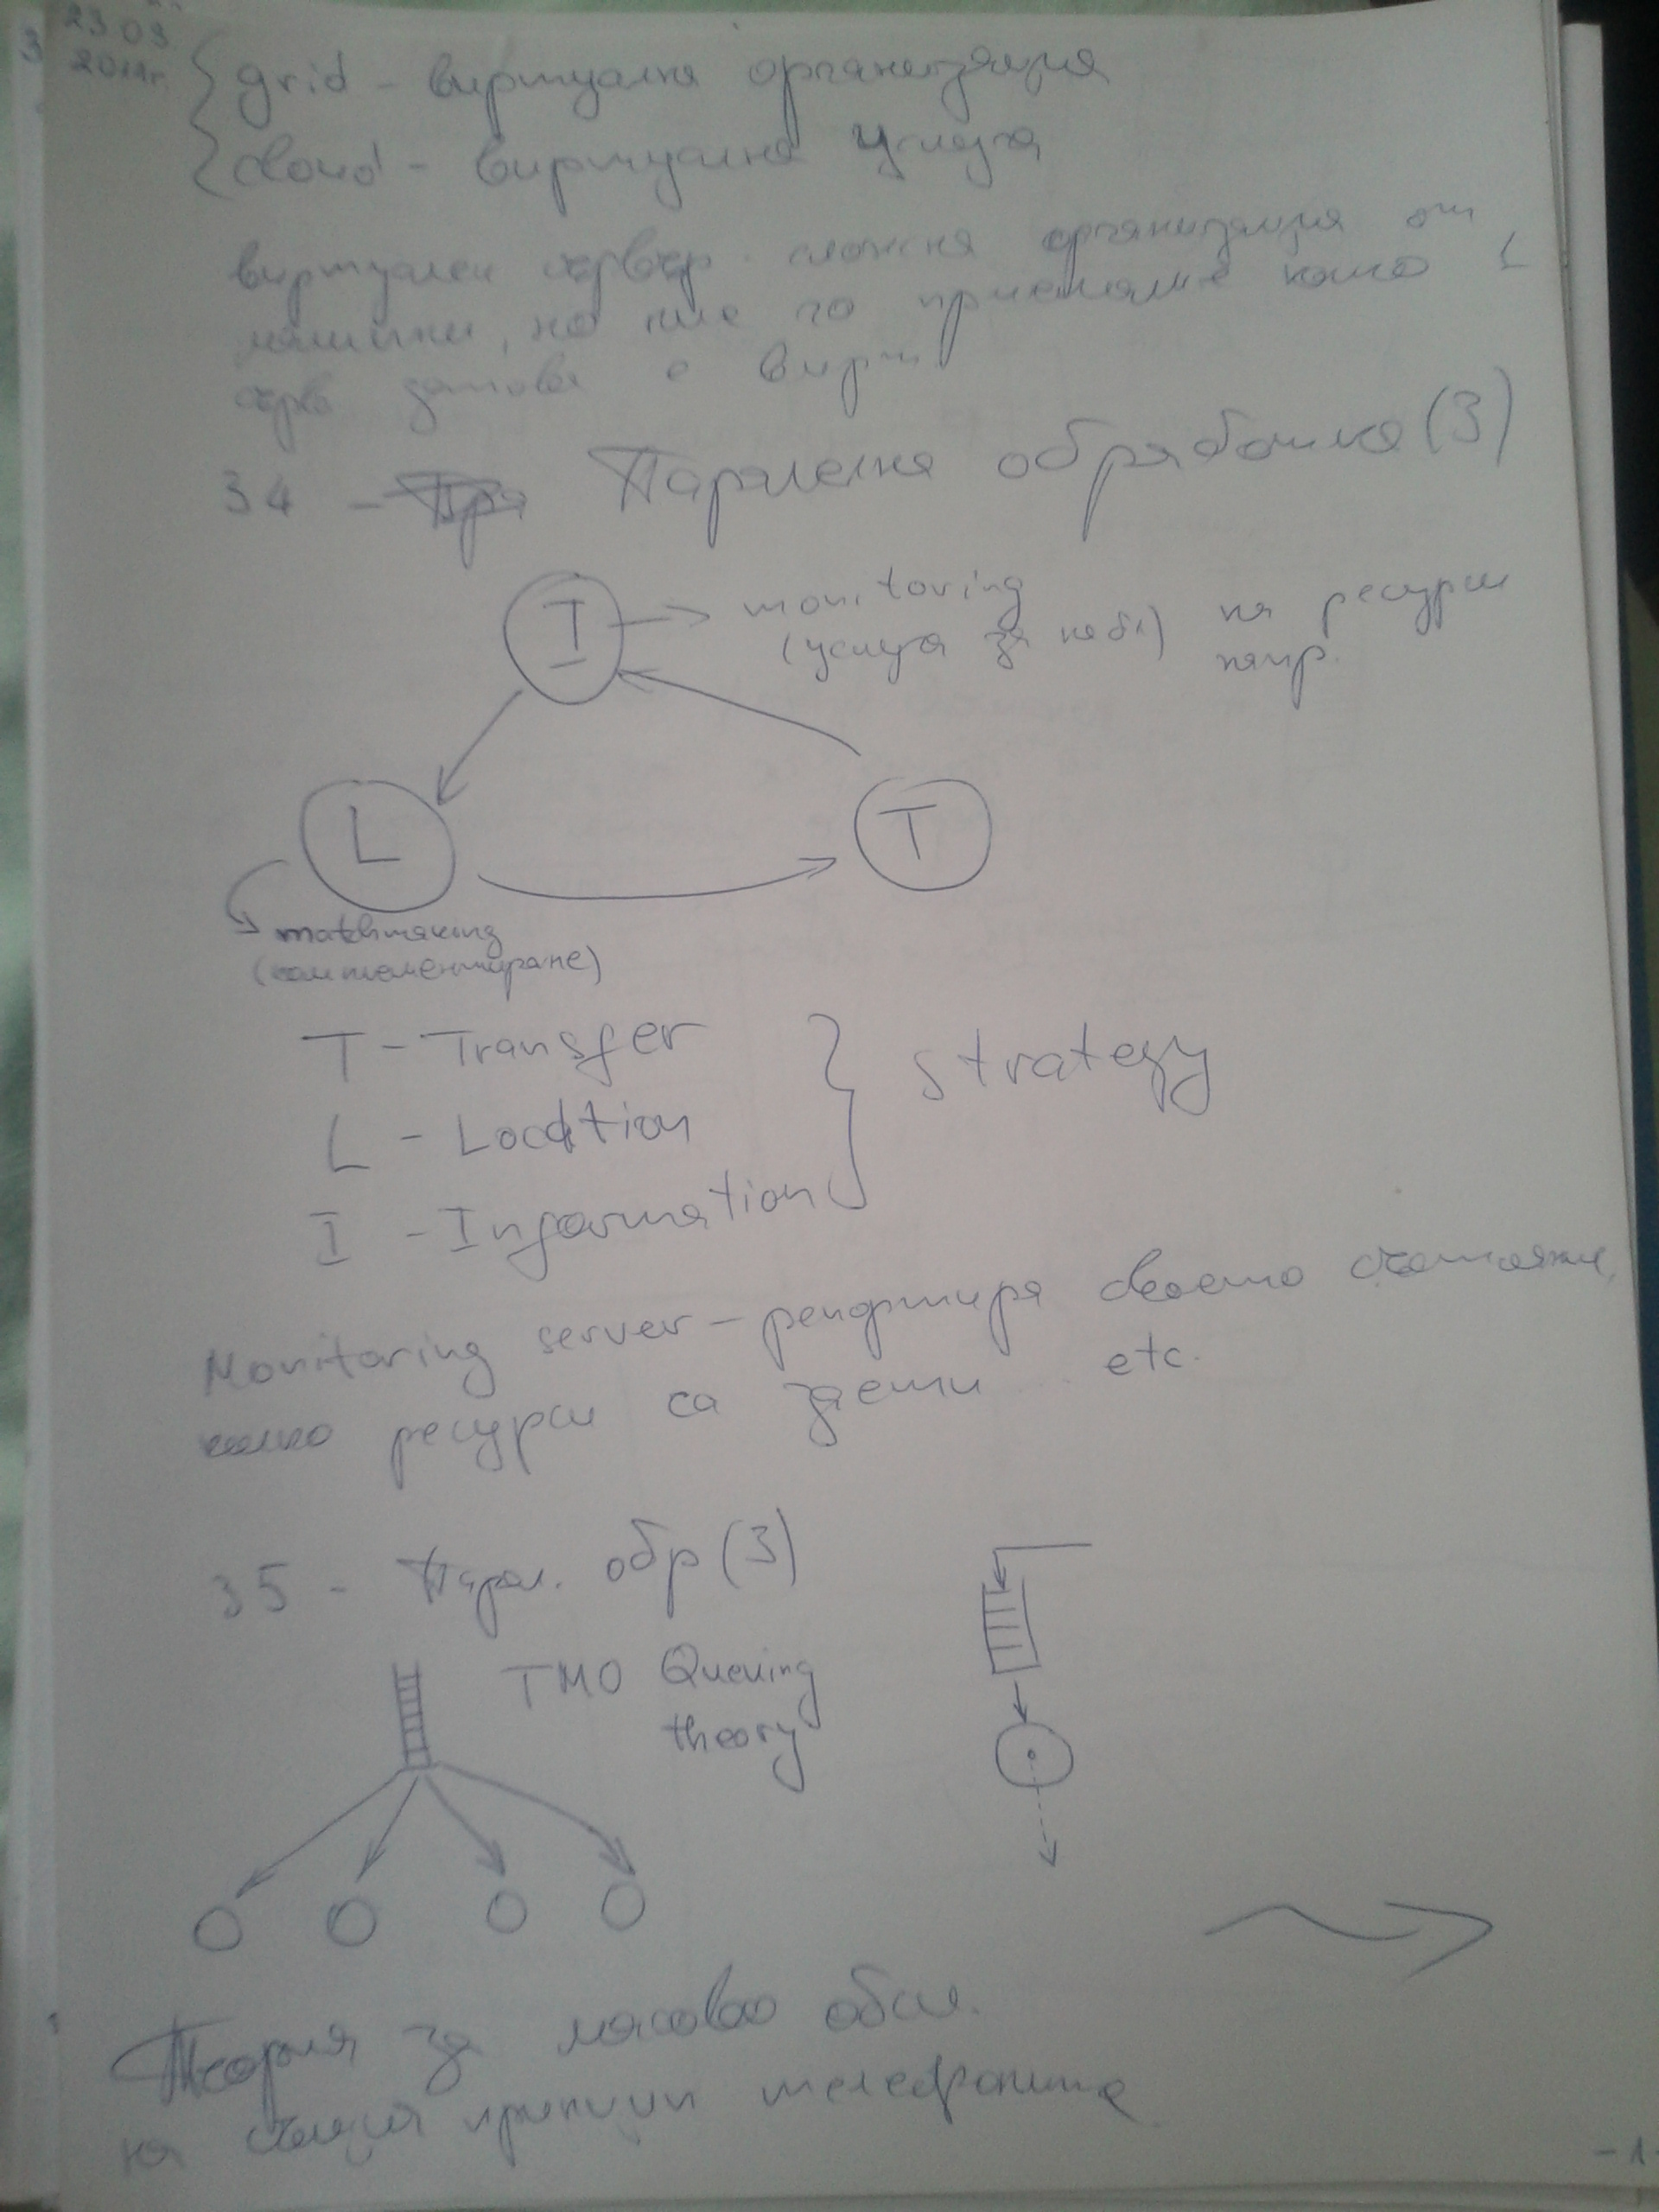 23 03
3
grid - виртуална организация
cloud - виртуална услуга
виртуален сървър - сложна организация от
машини, но ние го приемаме като 1
сърв затова е вирт.
34 - Паралелна обработка (3)
I
monitoring
(услуга за набл) на ресурси
напр.
L
T
matchmaking
(комплементиране)
T - Transfer
L - Location
I - Information
strategy
Monitoring server - репортира своето състояние,
колко ресурси са заети ... etc.
35 - Парал. обр (3)
TMO Queuing
theory
Теория за масово обсл.
на същия принцип телефоните
- 1